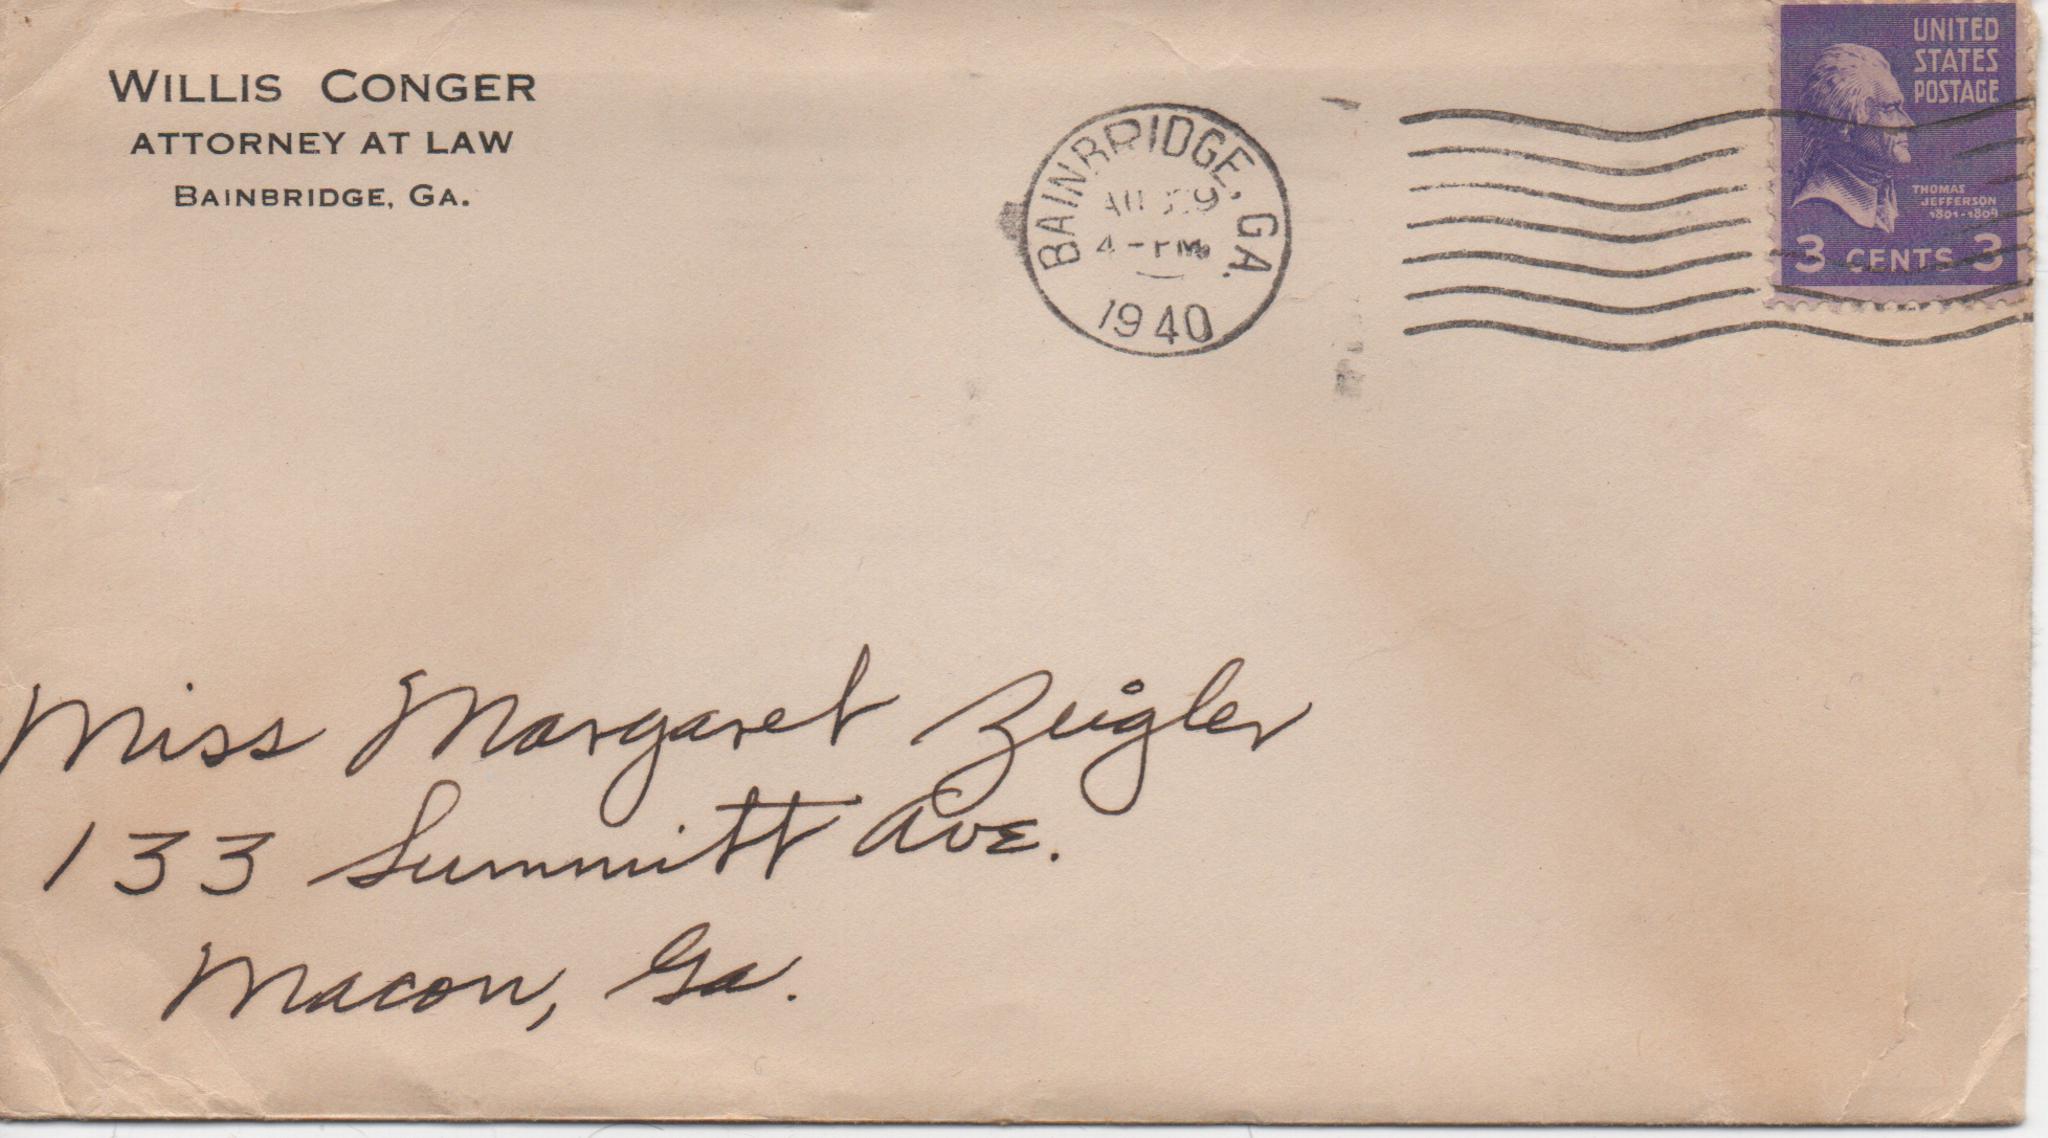 WILLIS CONGER
ATTORNEY AT LAW
BAINBRIDGE, GA.
BAINBRIDGE, GA.
4-PM
1940
UNITED
STATES
POSTAGE
THOMAS
JEFFERSON
1801-1809
3 CENTS 3
Miss Margaret Zeigler
133 Summitt Ave.
Macon, Ga.